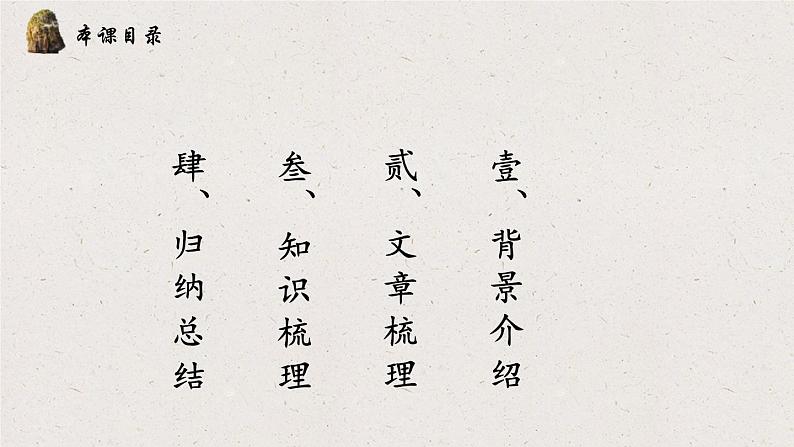 本课目录
壹、背景介绍
贰、文章梳理
叁、知识梳理
肆、归纳总结